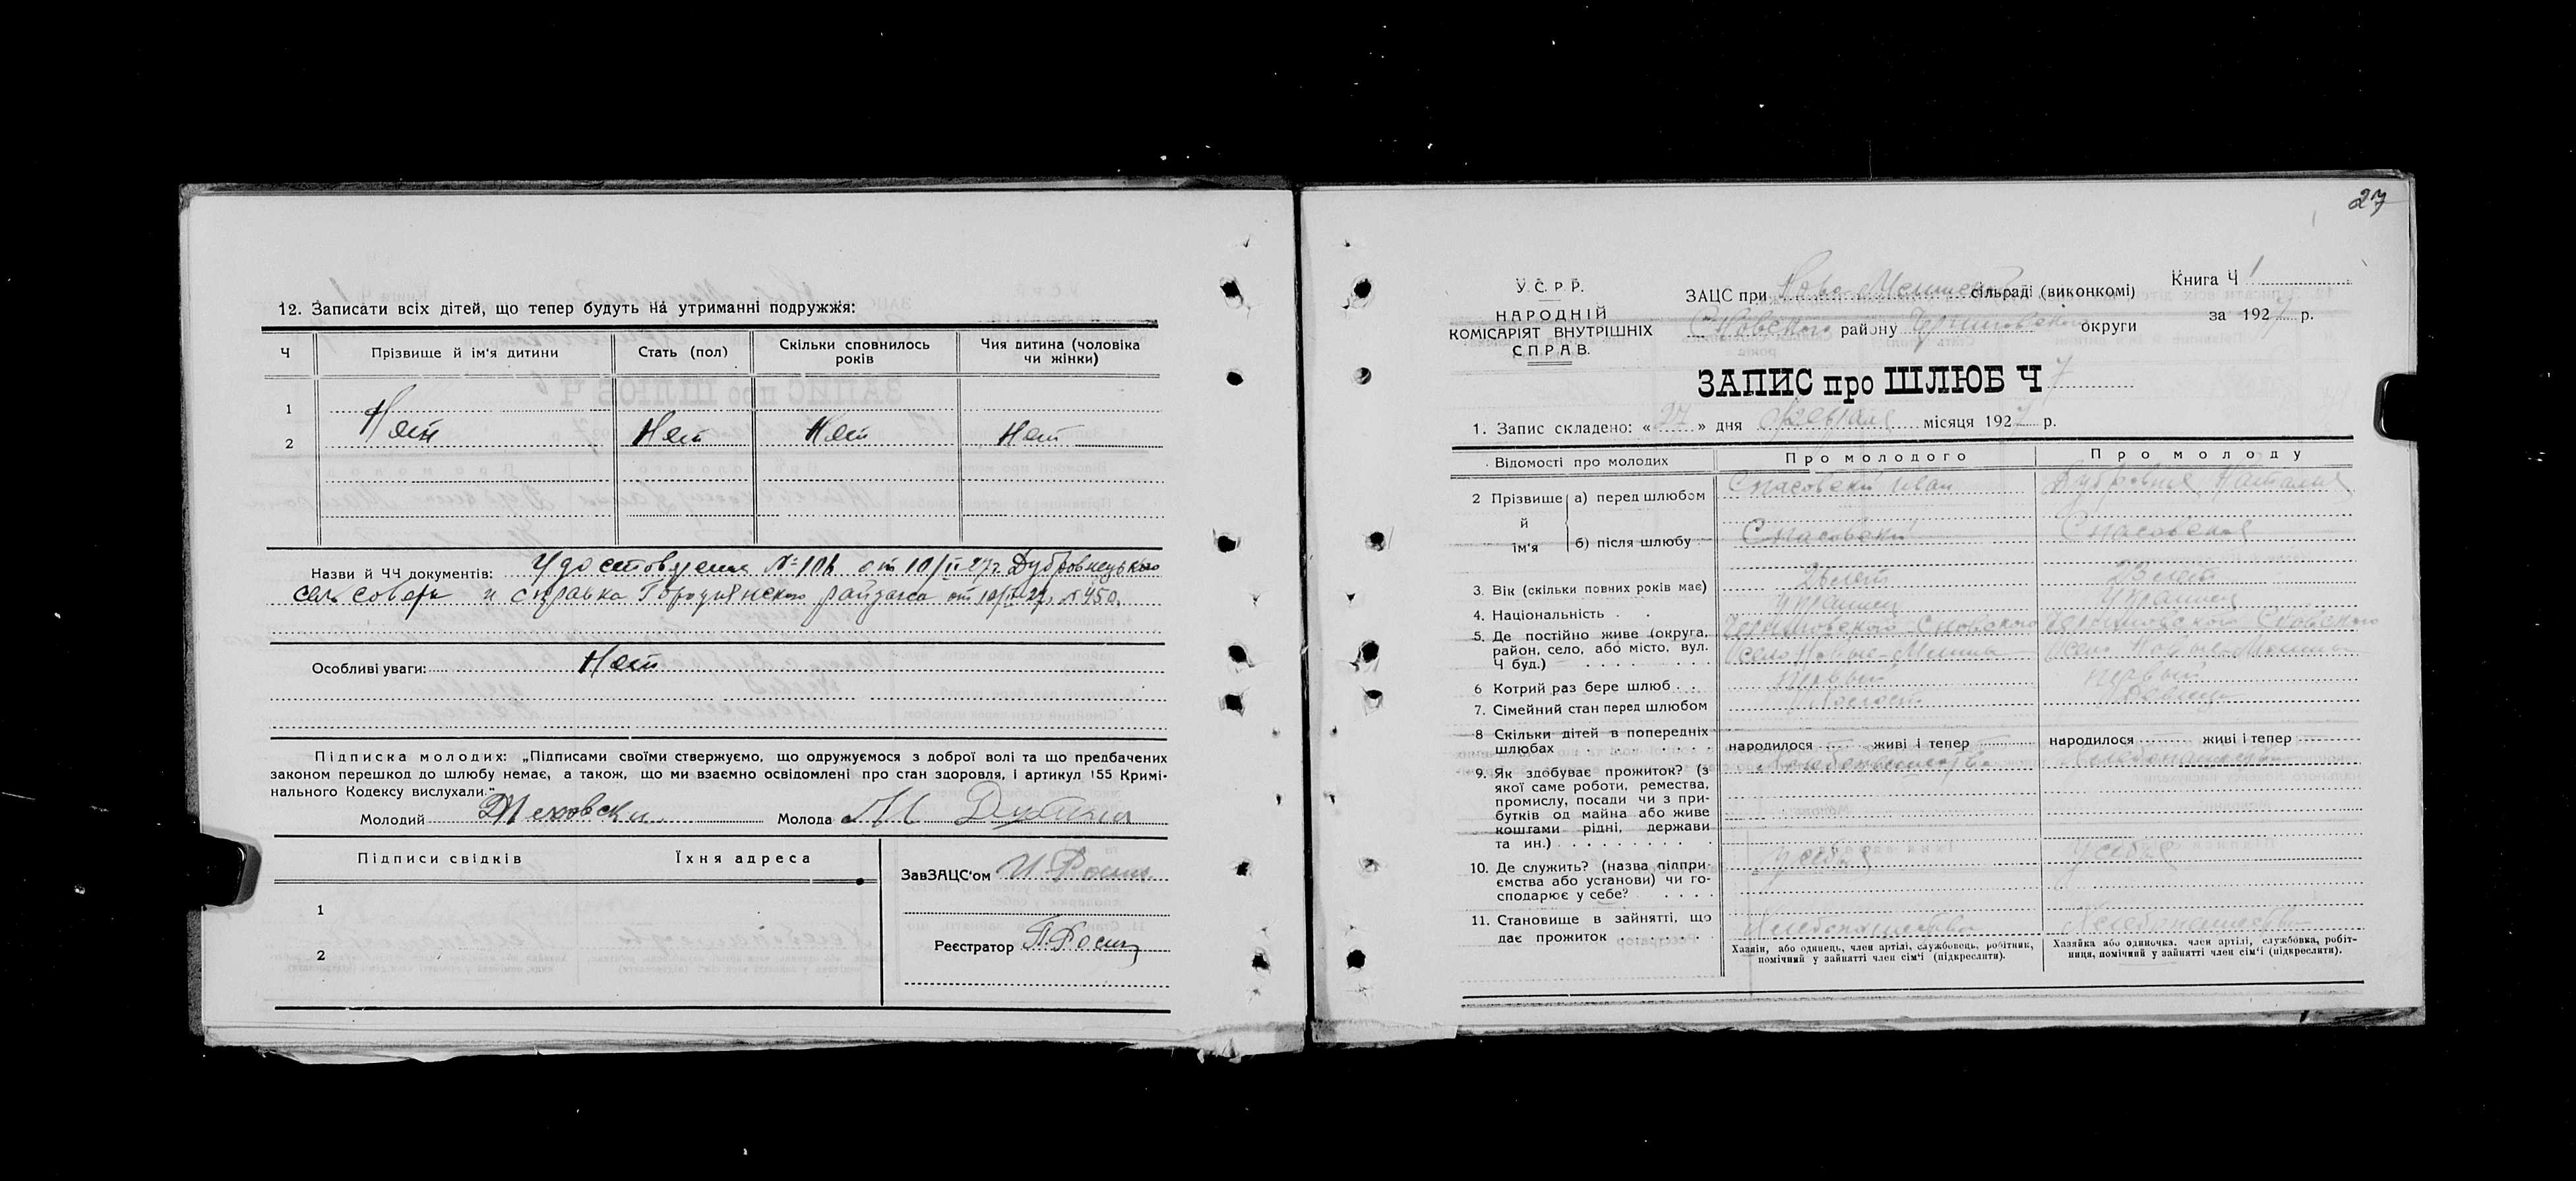 12. Записати всіх дітей, що тепер будуть на утриманні подружжя:
Ч
Прізвище й ім'я дитини
Стать (пол)
Скільки сповнилось років
Чия дитина (чоловіка чи жінки)
1
2 Нет Нет Нет Нет
Назви й ЧЧ документів: Удостоверение № от 10/II 27г. Дубровицького
сельсовета и справка Городнянского от
Особливі уваги: Нет
Підписка молодих: „Підписами своїми ствержуємо, що одружуємося з доброї волі та що предбачених
законом перешкод до шлюбу немає, а також, що ми взаємно освідомлені про стан здоровля, і артикул 155 Кримі-
нального Кодексу вислухали."
Молодий Молода
Підписи свідків Їхня адреса
ЗавЗАЦС'ом
1
Реєстратор
2
27
У.С.Р.Р.
НАРОДНІЙ
КОМІСАРІЯТ ВНУТРІШНІХ
СПРАВ.
ЗАЦС при Ново сільраді (виконкомі)
Сновского району Черниговского округи
Книга Ч 1
за 1927 р.
ЗАПИС про ШЛЮБ Ч 7
1. Запис складено: « 27 » дня февраля місяця 1927 р.
Відомості про молодих
Про молодого
Про молоду
2 Прізвище й ім'я
а) перед шлюбом Спасовский Иван Наталия
б) після шлюбу Спасовский Спасовская
3. Вік (скільки повних років має) лет 23 лет
4. Національність . . украинец украинец
5. Де постійно живе (округа,
район, село, або місто, вул.
Ч буд.) . . . . . . .
Черниговского Сновского
село Новые-Млины
Черниговского Сновского
село Новые-Млины
6 Котрий раз бере шлюб . . первый первый
7. Сімейний стан перед шлюбом холост девица
8 Скільки дітей в попередніх
шлюбах . . . . . . .
народилося живі і тепер
народилося живі і тепер
9. Як здобуває прожиток? (з
якої саме роботи, ремества,
промислу, посади чи з при-
бутків од майна або живе
коштами рідні, держави
та ин.) . . . . . . . . .
хлебопашество
хлебопашество
10. Де служить? (назва підпри-
ємства або установи) чи го-
сподарює у себе? . . . .
у себя
у себя
11. Становище в зайнятті, що
дає прожиток . . . . . .
хлебопашество
хлебопашество
Хазяін, або одинець, член артілі, службовець, робітник,
помічний у зайнятті член сім'ї (підкреслити).
Хазяйка або одиночка, член артілі, службовка, робіт-
ниця, помічний у зайнятті член сім'ї (підкреслити).